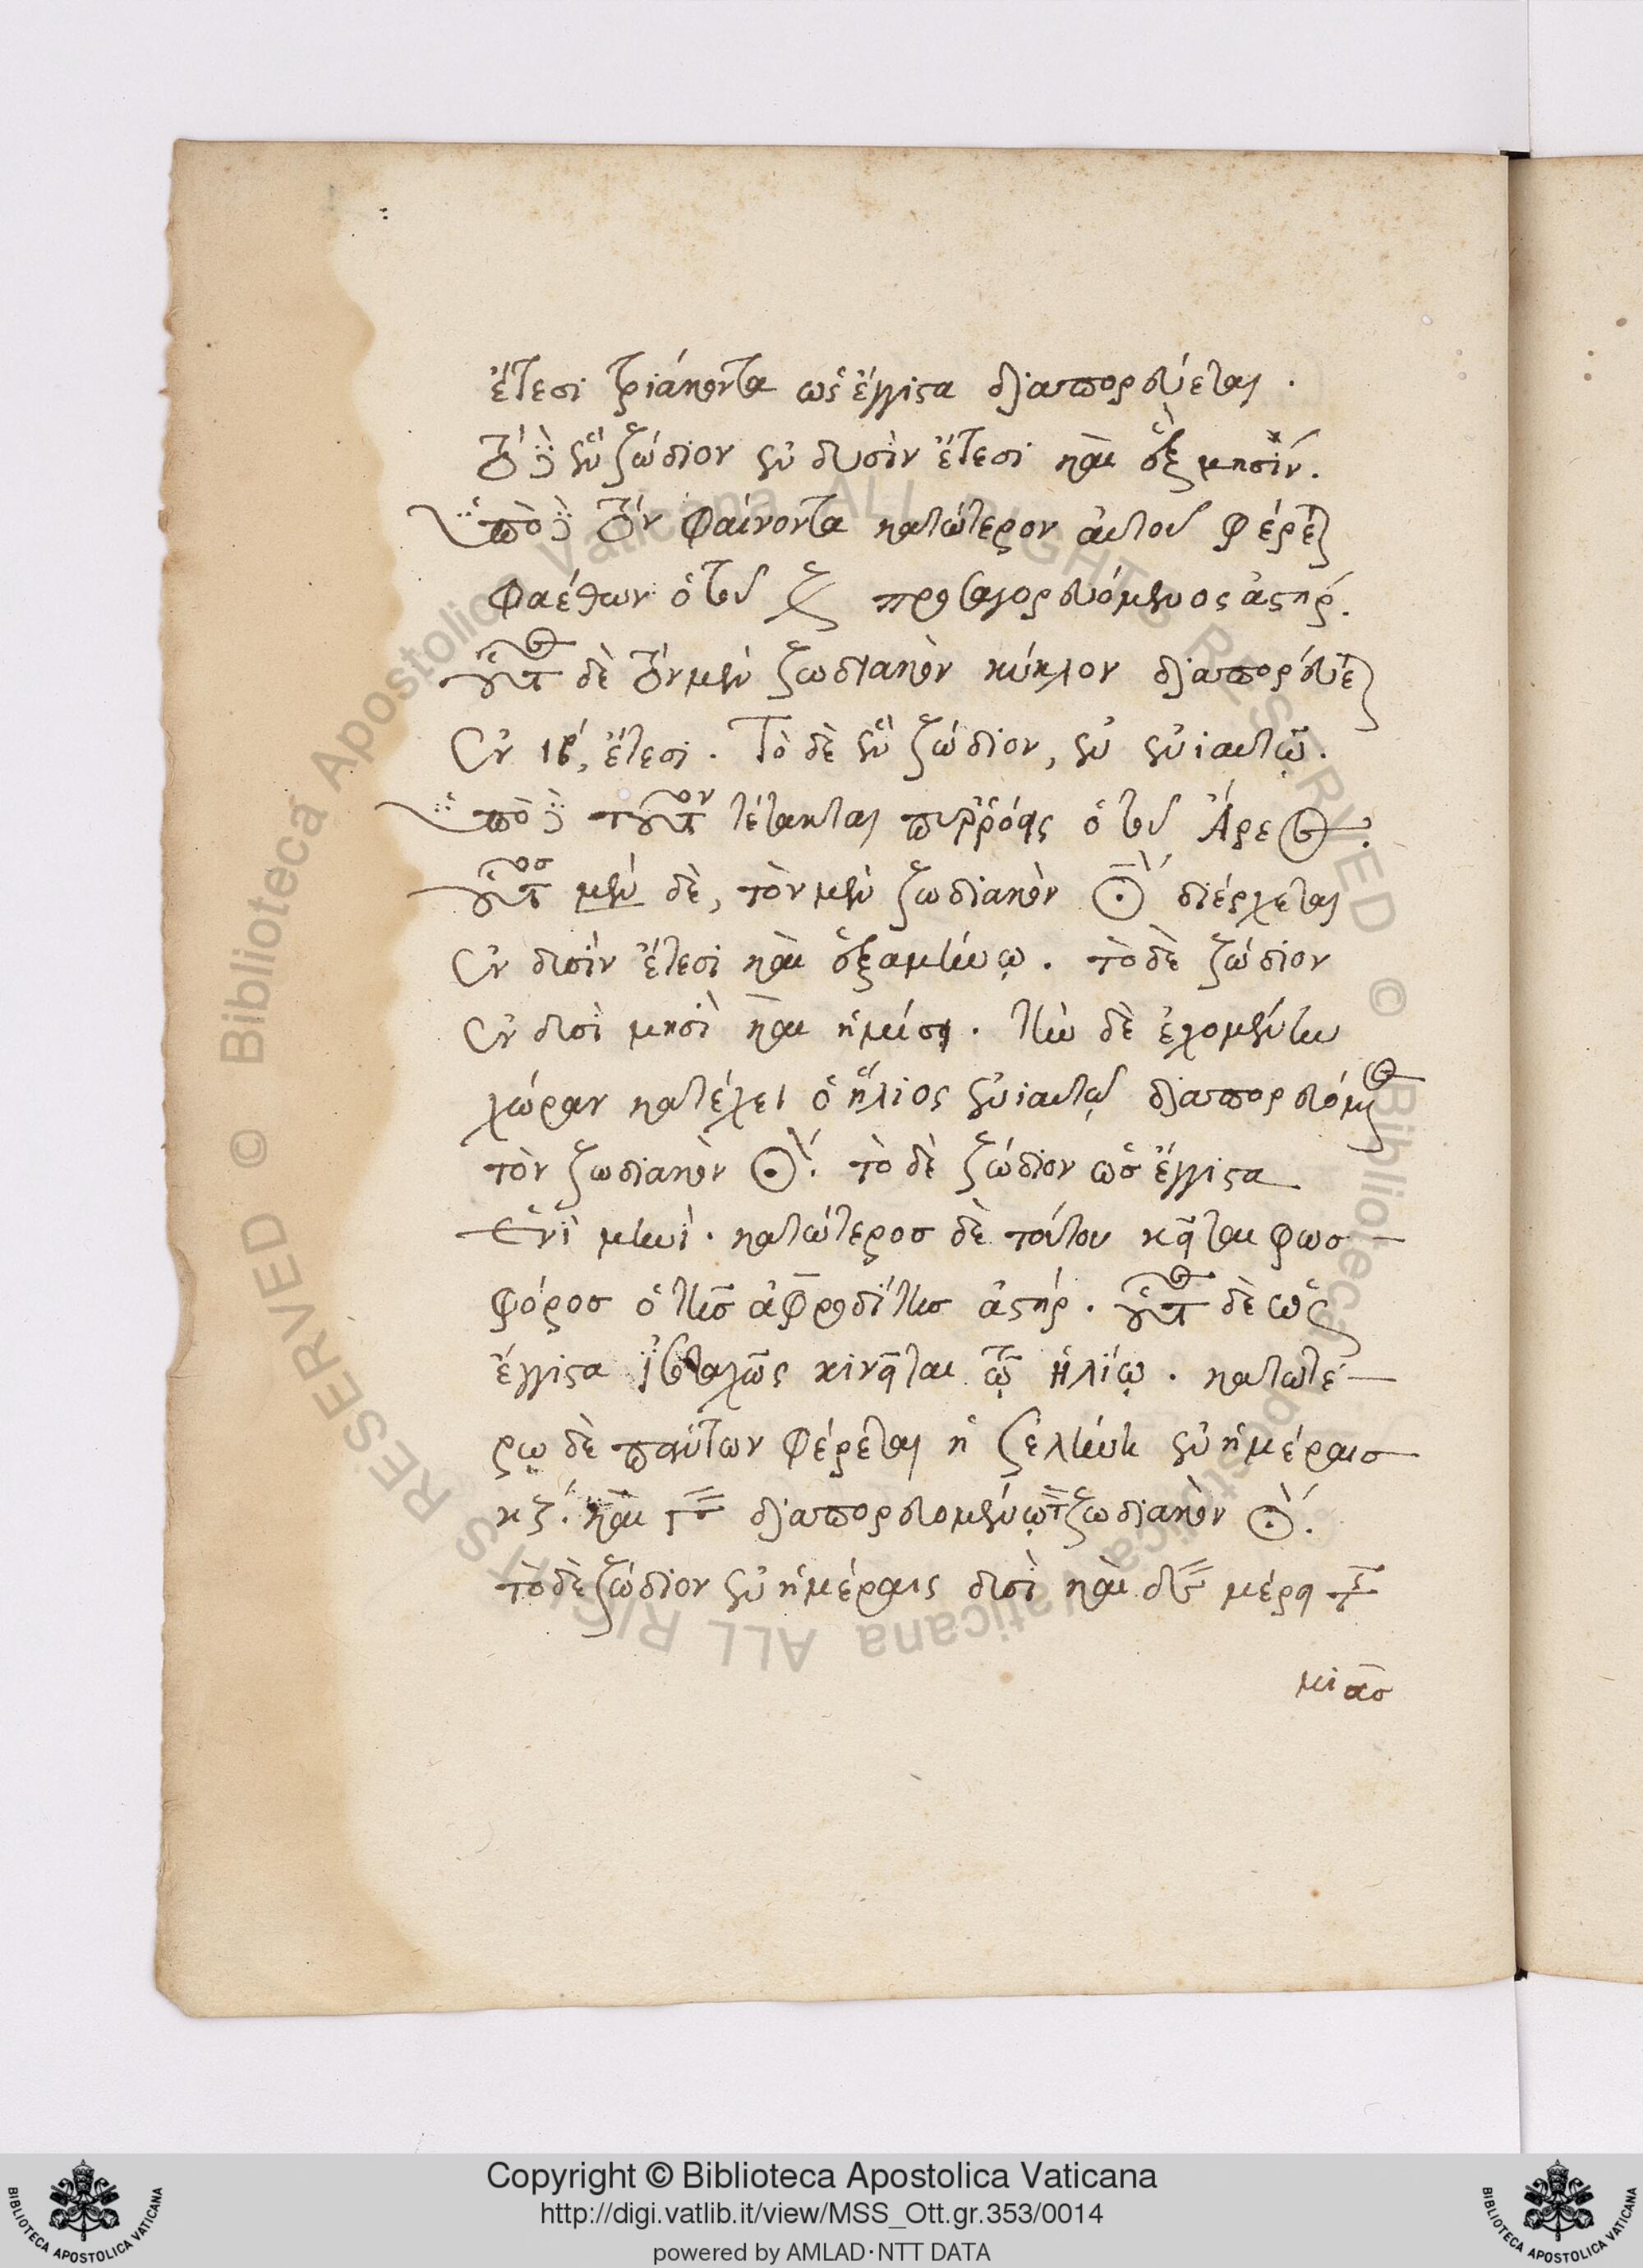 ἔτεσι τριάκοντα ὡς ἔγγιστα διαπορεύεται .
τὸ δὲ ἓν ζώδιον ἐν δυσὶν ἔτεσι καὶ ἓξ μησίν.
ὑπὸ δὲ τὸν φαίνοντα κατώτερον αὐτοῦ φέρεται
Φαέθων ὁ τοῦ προσαγορευόμενος ἀστήρ.
οὗτος δὲ τὸν μὲν ζωδιακὸν κύκλον διαπορεύεται
ἐν ιβ, ἔτεσι . Τὸ δὲ ἓν ζώδιον, ἐν ἐνιαυτῷ.
ὑπὸ δὲ τοῦτον τέτακται πυρρόεις ὁ τοῦ Ἄρεος.
οὗτος μὲν δὲ, τὸν μὲν ζωδιακὸν ⊙ διέρχεται
ἐν δυσὶν ἔτεσι καὶ ἑξαμήνῳ . τὸ δὲ ζώδιον
ἐν δυσὶ μησὶ καὶ ἡμίσει . τὴν δὲ ἐχομένην
χώραν κατέχει ὁ ἥλιος ἐνιαυτῷ διαπορευόμενος
τὸν ζωδιακὸν ⊙. τὸ δὲ ζώδιον ὡς ἔγγιστα
ἑνὶ μηνὶ . κατώτερος δὲ τούτου κεῖται φωσ
φόρος ὁ τῆς ἀφροδίτης ἀστήρ . οὗτος δὲ ὡς
ἔγγιστα ἰσοταχῶς κινεῖται τῷ ἡλίῳ . κατωτέ
ρω δὲ πάντων φέρεται ἡ σελήνη ἐν ἡμέραις
κζ. καὶ διαπορευομένη τὸν ζωδιακὸν ⊙.
τὸ δὲ ζώδιον ἐν ἡμέραις δυσὶ καὶ μέρει τῆς
μιᾶς
Copyright © Biblioteca Apostolica Vaticana
http://digi.vatlib.it/view/MSS_Ott.gr.353/0014
powered by AMLAD·NTT DATA
BIBLIOTECA APOSTOLICA VATICANA
BIBLIOTECA APOSTOLICA VATICANA
© Biblioteca Apostolica Vaticana ALL RIGHTS RESERVED © Biblioteca Apostolica Vaticana ALL RIGHTS RESERVED